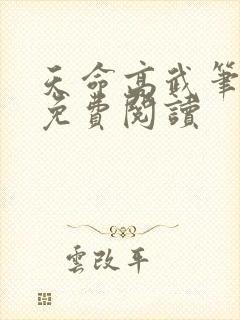 天命高武筆
免費閱讀
雲改平